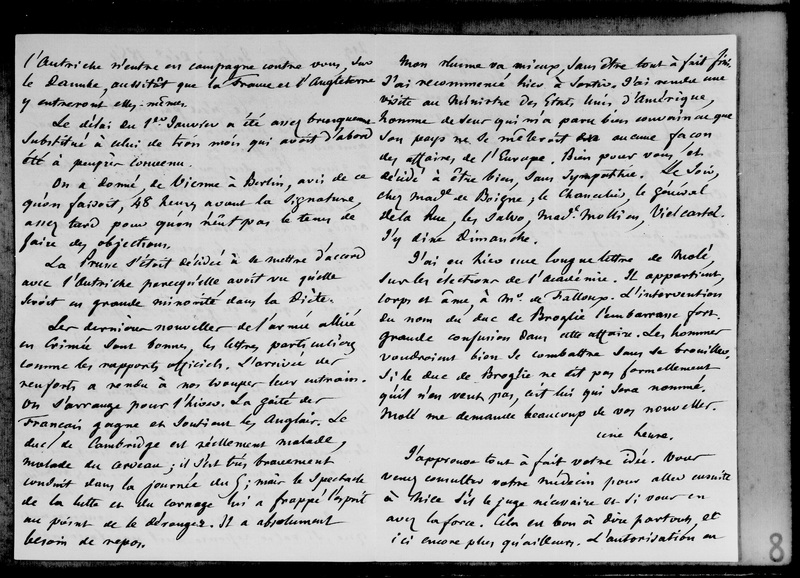 l'Autriche n'entre en campagne contre vous, sur
le Danube, aussitôt que la France et l'Angleterre
y entreront elles-mêmes.
Le délai du 1er Janvier a été assez brusquement
substitué à celui de trois mois qui avoit d'abord
été à peu près convenu.
On a donné, de Vienne à Berlin, avis de ce
qu'on faisoit, 48 heures avant la signature,
assez tard pour qu'on n'eût pas le tems de
faire des objections.
La Prusse s'étoit décidée à se mettre d'accord
avec l'Autriche parcequ'elle avoit vu qu'elle
seroit en grande minorité dans la Diète.
Les dernières nouvelles de l'armée alliée
en Crimée sont bonnes, les lettres particulières
comme les rapports officiels. L'arrivée des
renforts a rendu à nos troupes leur entrain.
On s'arrange pour l'hiver. La gaîté des
Français gagne et soutient les Anglais. Le
duc de Cambridge est réellement malade,
malade du cerveau ; il s'est très bravement
conduit dans la journée du 5 ; mais le spectacle
de la lutte et du carnage lui a frappé l'esprit
au point de le déranger. Il a absolument
besoin de repos.
Mon rhume va mieux, sans être tout à fait fini.
J'ai recommencé hier à sortir. J'ai rendu une
visite au Ministre des Etats Unis d'Amérique,
homme de Sens qui m'a paru bien convaincu que
son pays ne se mêleroit en aucune façon
des affaires de l'Europe. Bien pour vous, et
décidé à être bien, sans sympathie. Le Soir,
chez Made de Boigne, le Chancelier, le général
de la Rue, les Salvo, Made Mollien, Viel Castel.
J'y dîne Dimanche.
J'ai eu hier une longue lettre de Molé,
sur les élections de l'Académie. Il appartient,
corps et âme, à Mr de Falloux. L'intervention
du nom du duc de Broglie l'embarrasse fort.
grande confusion dans cette affaire. Les hommes
voudroient bien se combattre sans se brouiller.
Si le duc de Broglie ne dit pas formellement
qu'il n'en veut pas, c'est lui qui sera nommé.
Molé me demande beaucoup de vos nouvelles.
une heure.
J'approuve tout à fait votre idée. Vous
venez consulter votre médecin pour aller ensuite
à Nice s'il le juge nécessaire et si vous en
avez la force. Cela est bon à dire partout, et
ici encore plus qu'ailleurs. L'autorisation en
8